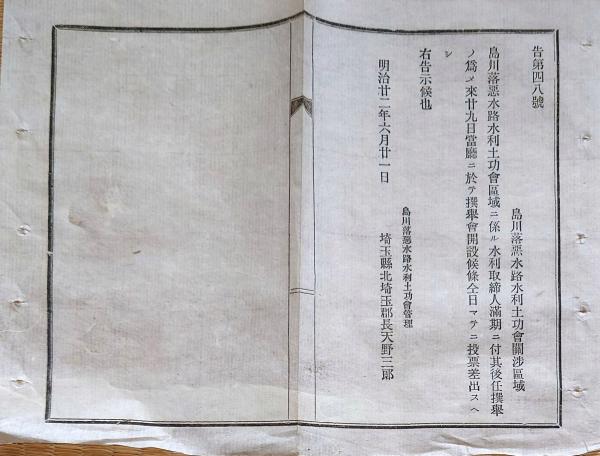 告第四八號
島川落惡水路水利土功會關渉區域
島川落惡水路水利土功會區域ニ係ル水利取締人滿期ニ付其後任撰擧
ノ爲メ來廿九日當廳ニ於テ撰擧會開設候條仝日マテニ投票差出スヘ
シ
右告示候也
島川落惡水路水利土功會管理
明治廿二年六月廿一日
埼玉縣北埼玉郡長天野三郎